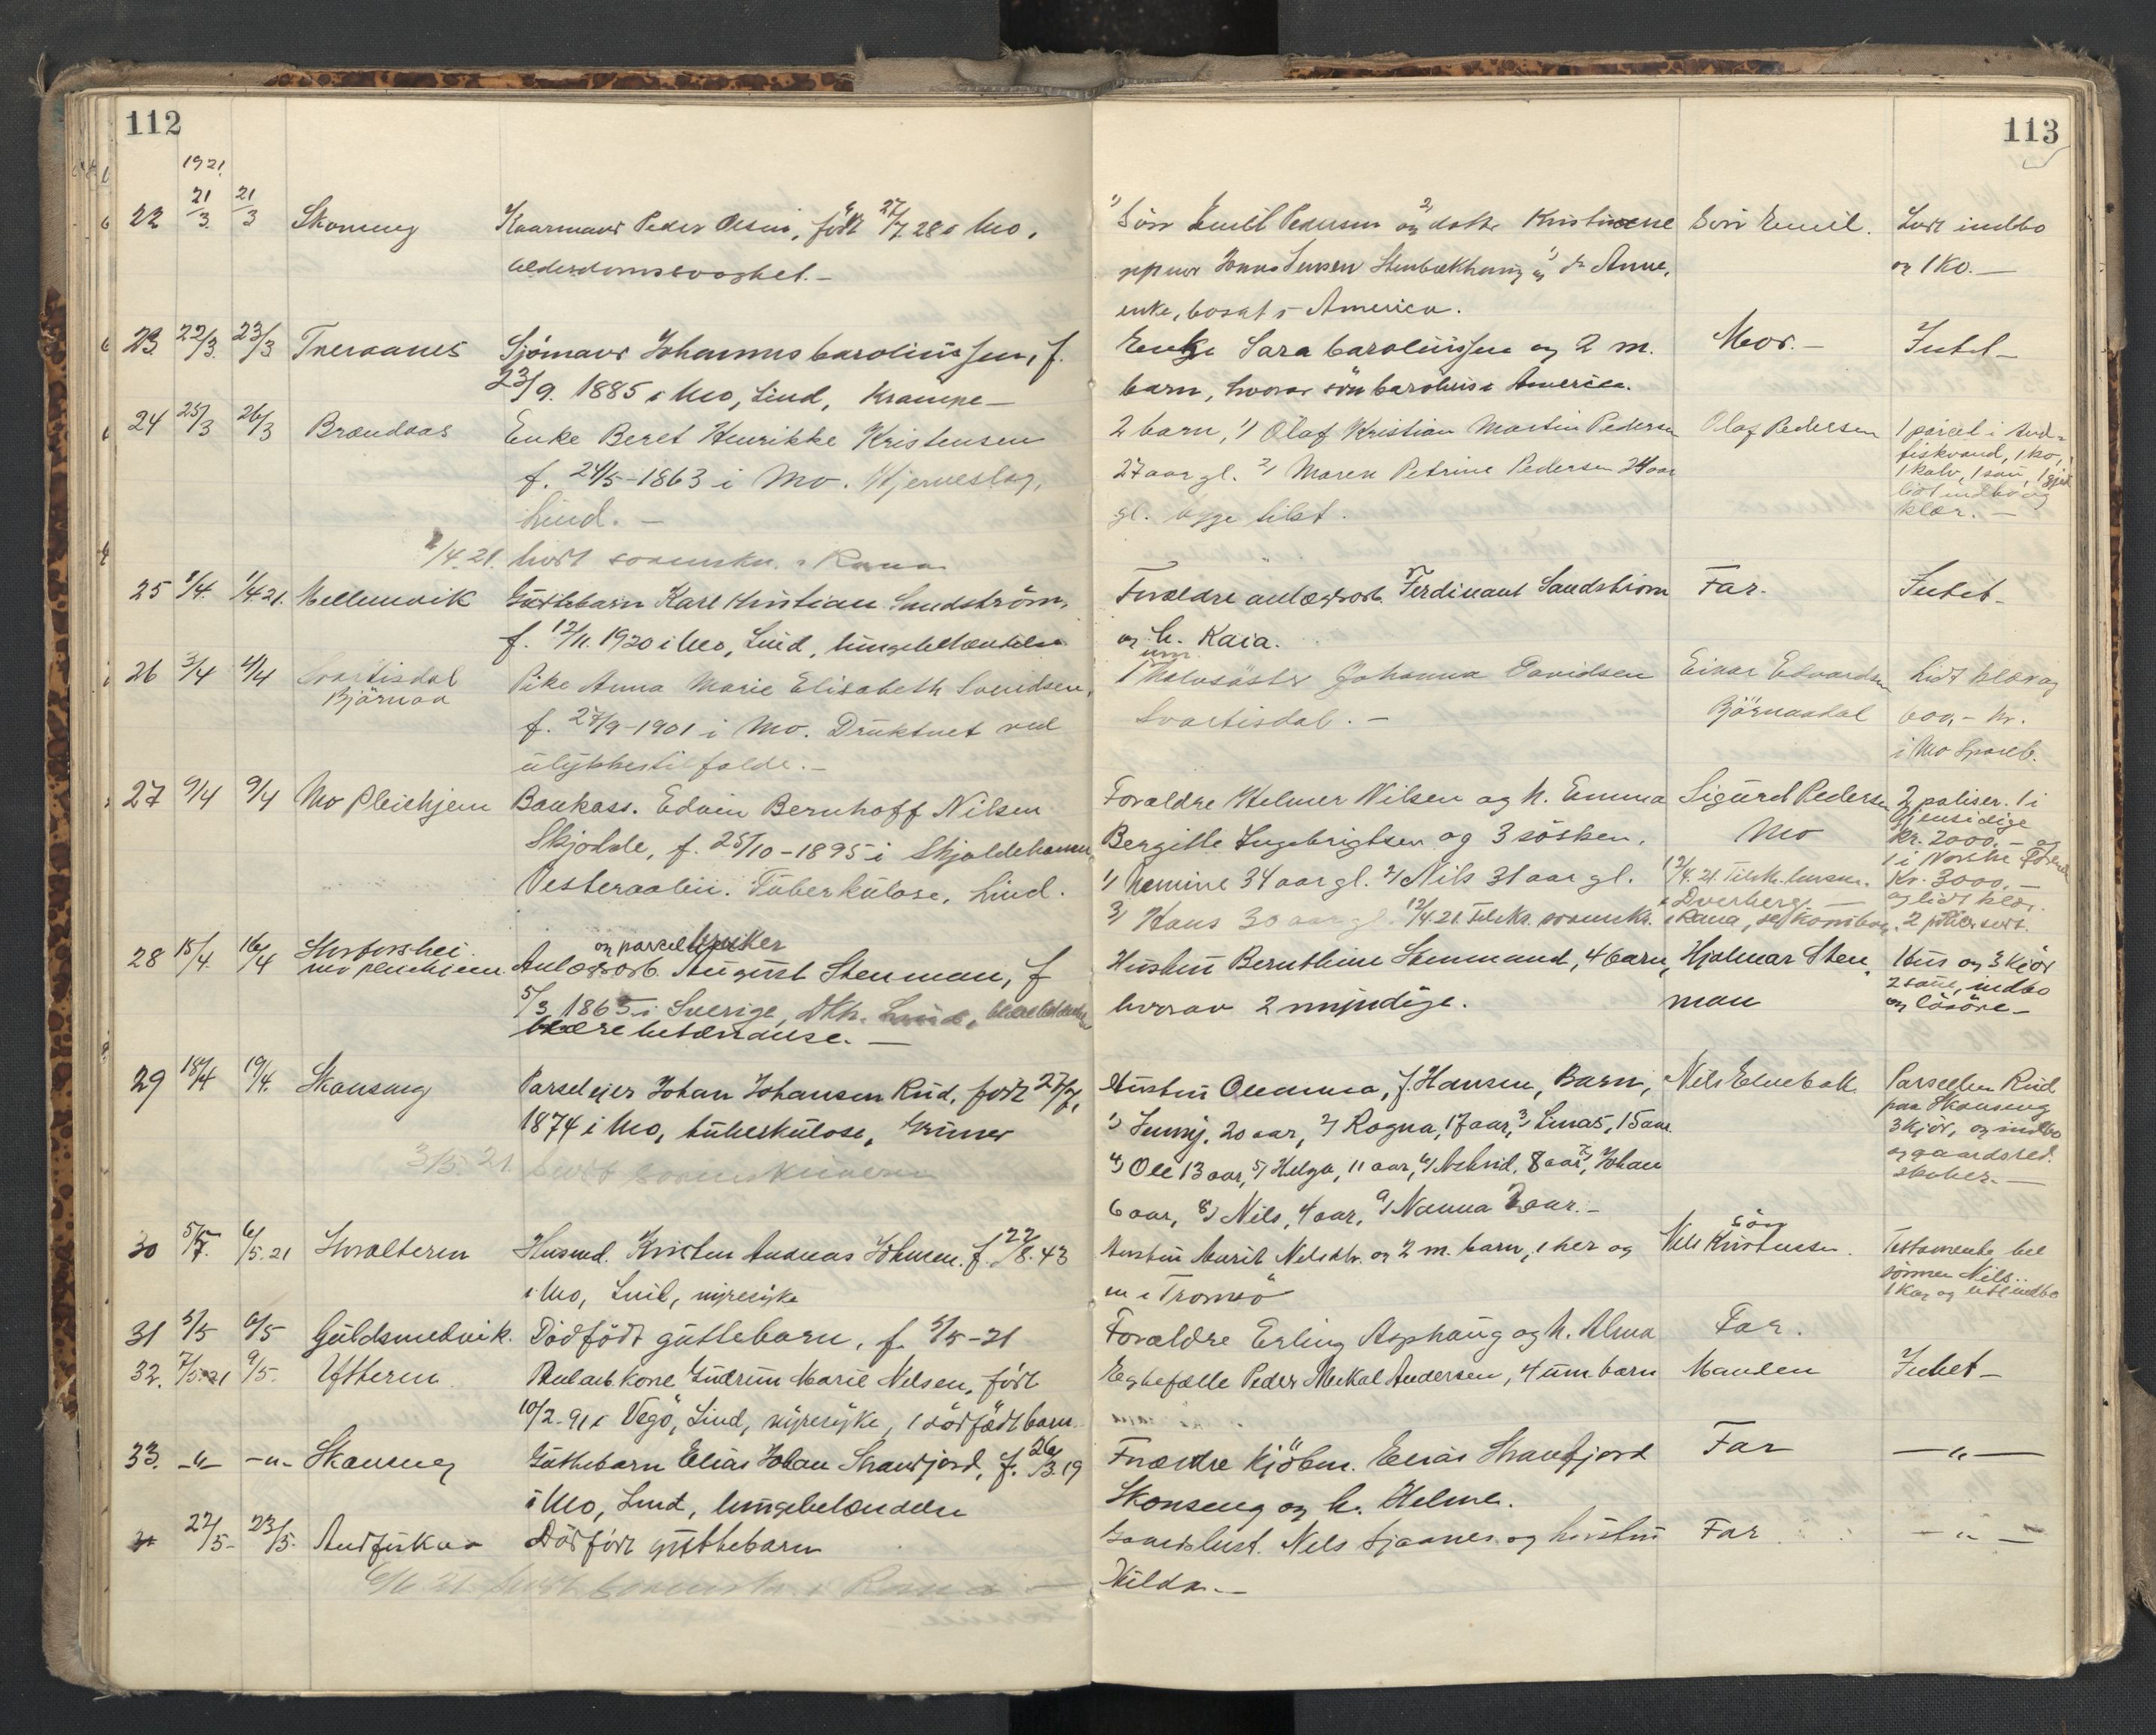 112
1921.
22 21/3 21/3 Skonseng Kaarmand Peder Olsen, født 27/7 28 i Mo,
alderdomssvaghet. —
23 22/3 23/3 Tveraanes Sjömand Johannes Caroliussen, f.
23/9. 1885 i Mo, Lind, Krampe —
24 25/3 26/3 Brændaas Enke Beret Henrikke Kristensen
f. 24/5 - 1863 i Mo. Hjerneslag,
Lind. —
/4. 21. hvert sorenskr. i Rana
25 1/4. 1/4 21. Mellemvik Guttebarn Karl Kristian Sandström,
f. 12/11. 1920 i Mo, Lind, lungebetændelse
26 3/4 4/4 Svartisdal
Bjärnaa Pike Anna Marie Elisabeth Svendsen,
f. 27/9 - 1901 i Mo. Druktnet ved
ulykkestilfælde. —
27 9/4 9/4 Mo Pleiehjem Bankass. Edvin Bernhoff Nilsen
Skjolde, f. 25/10 - 1895 i Skjoldehamn
Vesteraalen. Tuberkulose, Lind.
28 15/4. 16/4 Storforshei
Mo pleiehjem og parcelbruker
Anlægsarb. August Stenman, f
5/3 1865 i Sverige,
betændelse. —
29 18/4 19/4. Skonseng Parseleier Johan Johansen Rud, født 27/7,
1874 i Mo, tuberkulose,
3/5. 21
30 5/5. 6/5. 21 Storalteren Husmd. Kristen Andreas Johnsen f. 22/8. 43
i Mo, Lind, nyresyke
31 5/5 6/5 Guldsmedvik. Dödfödt guttebarn, f. 5/5 - 21
32. 7/5. 21 9/5. Ytteren Anl.arb. kone Gudrun Marie Nilsen, født
10/2 - 91 i Vegö, Lind, nyresyke, 1 dödfödt barn.
33. -"- -"- Skonseng Guttebarn Elias Johan Strandfjord, f. 26/3. 19
i Mo, Lind, lungebetændelse
22/5- 23/5. Andfiskaa Dödfödt guttebarn
113
1) Sön Emil Pedersen og 2) datter Kristine
gift med Jonas Jensen Stenbækhaug og 3) d. Anne,
enke, bosat i America. Sön Emil. Lidt indbo
og 1 Ko. —
Enke Sara Caroliussen og 2 m.
barn, hvorav sön Carolius i America. Mor. — Intet —
2 barn, 1) Olaf Kristian Martin Pedersen
27 aar gl. 2) Maren Petrine Pedersen 24 aar
gl. begge tilst. Olaf Pedersen 1 parcel i And-
fiskvand, 1 ko,
1 kalv, 1 sau, 1 gjet
lidt indbo og
klær. —
Forældre anlægsarb. Ferdinant Sandström
og h. Kaia. Far. Intet —
1 Halvsöster Johanna Davidsen
Svartisdal. — Einar Edvardsen
Bjärnaadal Lidt klær og
600,- kr.
i Mo Spareb.
Forældre Helmer Nilsen og h. Emma
Bergitte Ingebrigtsen og 3 sösken.
1) Namine 34 aar gl. 2) Nils 31 aar gl.
3) Hans 30 aar gl. 12/4 21. Tilskr. sorenskr. i Rana, Sigurd Pedersen
Mo
12/4. 21. Tilskr. lensm.
i Dverberg. — 2 poliser. 1 i
Gjensidige
Kr. 2000. — og
1 i Norske
Kr. 3000, —
og lidt klær.
Hustru Bernthine Stenmand, 4 barn,
hvorav 2 myndige. Hjalmar Sten-
man Hus og 3 kjör
2 sauer, indbo
og lösöre —
Hustru Oleanna, f. Hansen, Barn,
1) Jenny, 20 aar, 2) Ragna, 17 aar, 3) Linas, 15 aar
4) Ole 13 aar, 5) Helga, 11 aar, 6) Astrid, 8 aar, 7) Johan
6 aar, 8) Nils, 4 aar, 9) Nanna 2 aar. — Nils Elvebak Parsellen Rud
paa Skonseng
3 kjör, og indbo
og gaardsred.
skaber. —
Hustru Marit Nelsdtr. og 2 m. barn, 1 her og
en i Tromsö sön
Nils Kristensen. Testamente til
sönnen Nils.
1 Ko, og lidt indbo
Forældre Erling Asphaug og h. Alma Far.
Egtefælle Peder Mekal Andersen, 4 um. barn Manden Intet —
Forældre Kjöbm. Elias Strandfjord
Skonseng og h. Helma. Far — " —
Gaardbest. Nils Sjaanes og hustru
Hilda. — Far — " —